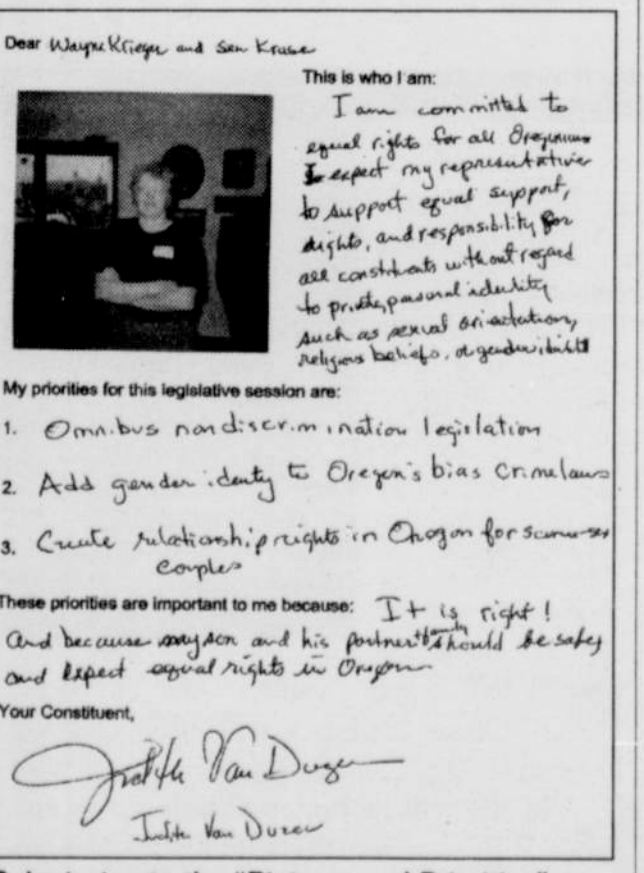 Dear Wayne Krieger and Sen Kruse
This is who I am:
I am committed to
equal rights for all Oregonians
I expect my representatives
to support equal support,
rights, and responsibility for
all constituents without regard
to private, personal identity
such as sexual orientation,
religious beliefs, or gender identity
My priorities for this legislative session are:
1. Omnibus nondiscrimination legislation
2. Add gender identy to Oregon's bias crime laws
3. Create relationship rights in Oregon for same-sex
couples
These priorities are important to me because: It is right!
and because my son and his partner + family should be safe
and expect equal rights in Oregon
Your Constituent,
Judith Van Duzer
Judith Van Duzer